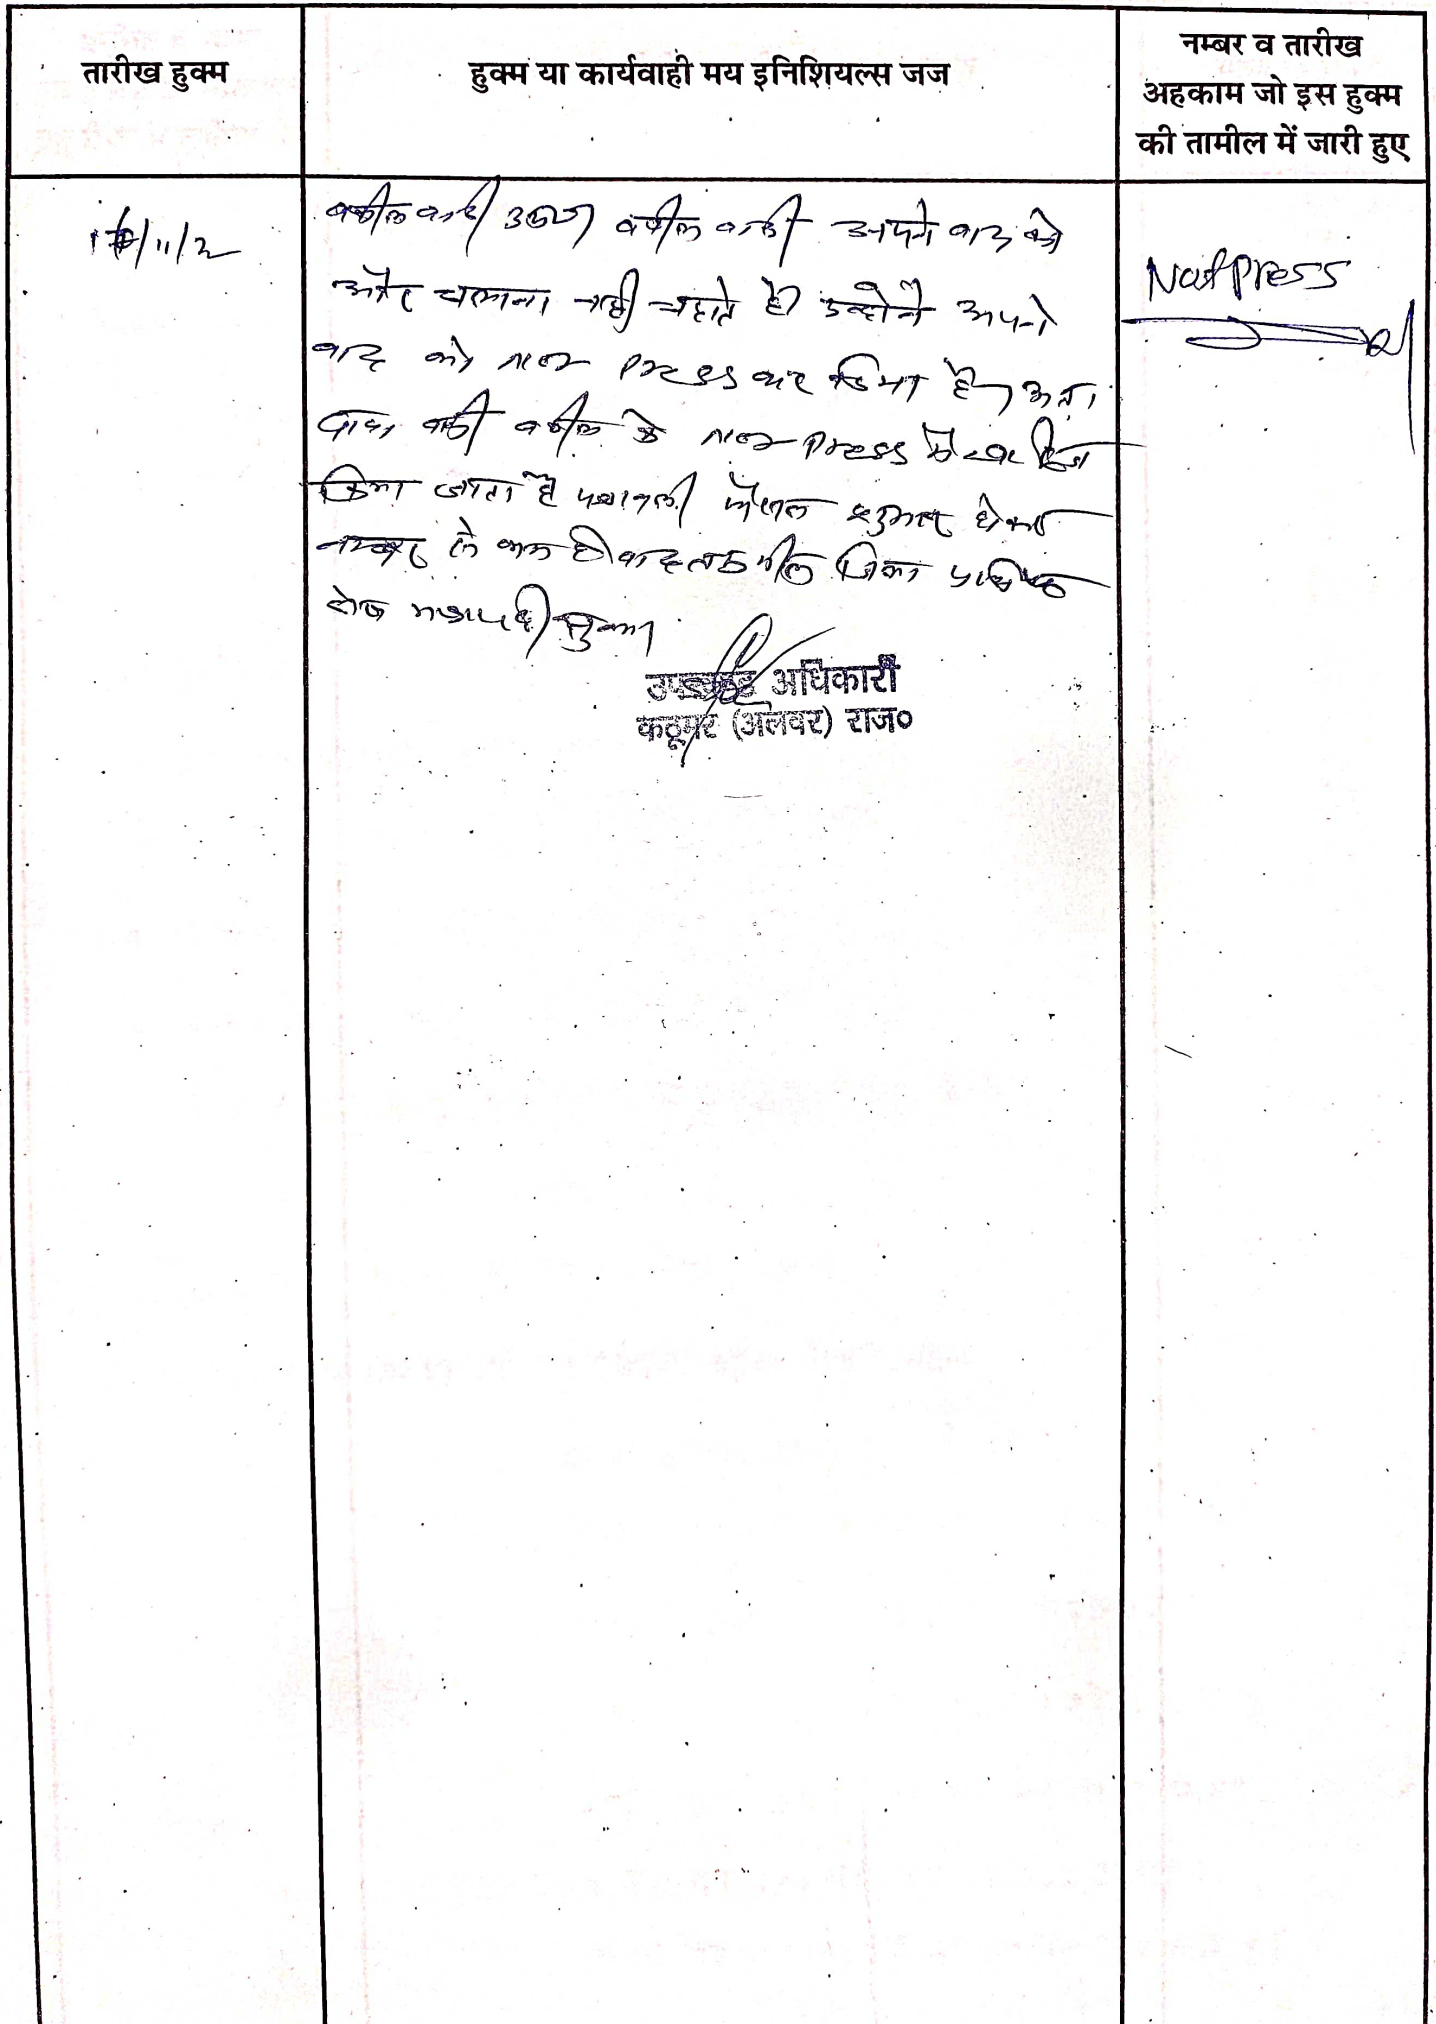 तारीख हुक्म
हुक्म या कार्यवाही मय इनिशियल्स जज
नम्बर व तारीख
अहकाम जो इस हुक्म
की तामील में जारी हुए
वकील वादी उप० वकील वादी अपने वाद को
और चलाना नही चहाते है उन्होने अपने
वाद को नाट Press कर दिया है अतः
वाद वादी वकील के नाट Press मे खारिज
किया जाता है पत्रावली फैसल शुमार होकर
नम्बर से कम हो वाद तकमील
उपखण्ड अधिकारी
कठूमर (अलवर) राज०
Not Press